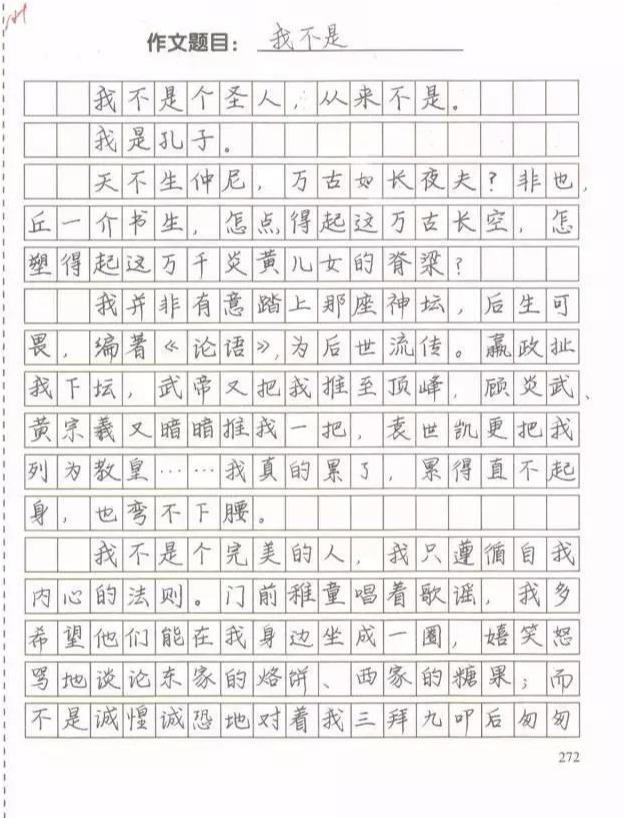 作文题目：我不是
我不是个圣人，从来不是。
我是孔子。
天不生仲尼，万古如长夜夫？非也，
丘一介书生，怎点得起这万古长空，怎
塑得起这万千炎黄儿女的脊梁？
我并非有意踏上那座神坛，后生可
畏，编著《论语》，为后世流传。嬴政扯
我下坛，武帝又把我推至顶峰，顾炎武、
黄宗羲又暗暗推我一把，袁世凯更把我
列为教皇……我真的累了，累得直不起
身，也弯不下腰。
我不是个完美的人，我只遵循自我
内心的法则。门前稚童唱着歌谣，我多
希望他们能在我身边坐成一圈，嬉笑怒
骂地谈论东家的烙饼、西家的糖果；而
不是诚惶诚恐地对着我三拜九叩后匆匆
272